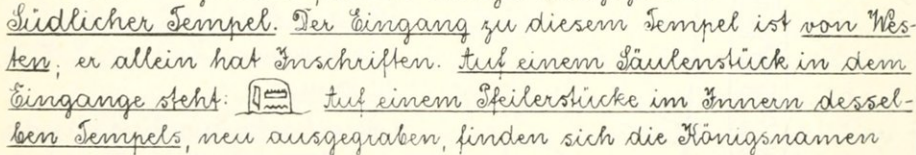 Südlicher Tempel. Der Eingang zu diesem Tempel ist von Wes-
ten; er allein hat Inschriften. Auf einem Säulenstück in dem
Eingange steht: Auf einem Pfeilerstücke im Innern dessel-
ben Tempels, neu ausgegraben, finden sich die Königsnamen